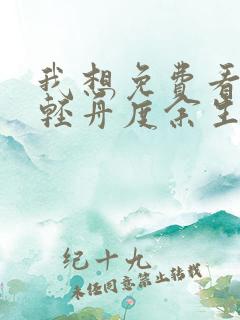 我想免费看
轻舟度余生
纪十九
未经同意禁止转载